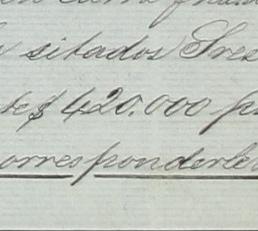 sitados Sres
$ 420.000 p
orresponderles